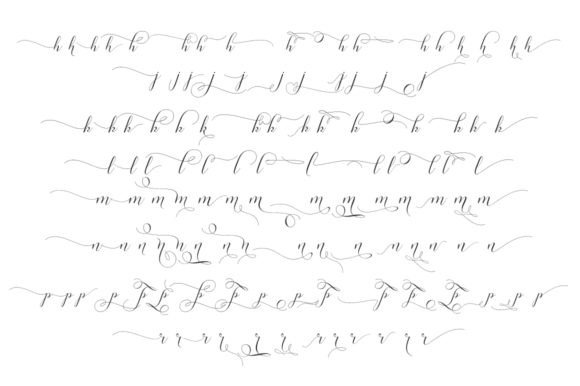 h h h h h h h h h h h h h h h h h
j j j j j j j j j j j
k k k k k k k k k k k k k k k k
l l l l l l l l l l l l l
m m m m m m m m m m m m m m
n n n n n n n n n n n n n n n n
p p p p p p p p p p p p p p p p p
r r r r r r r r r r r r